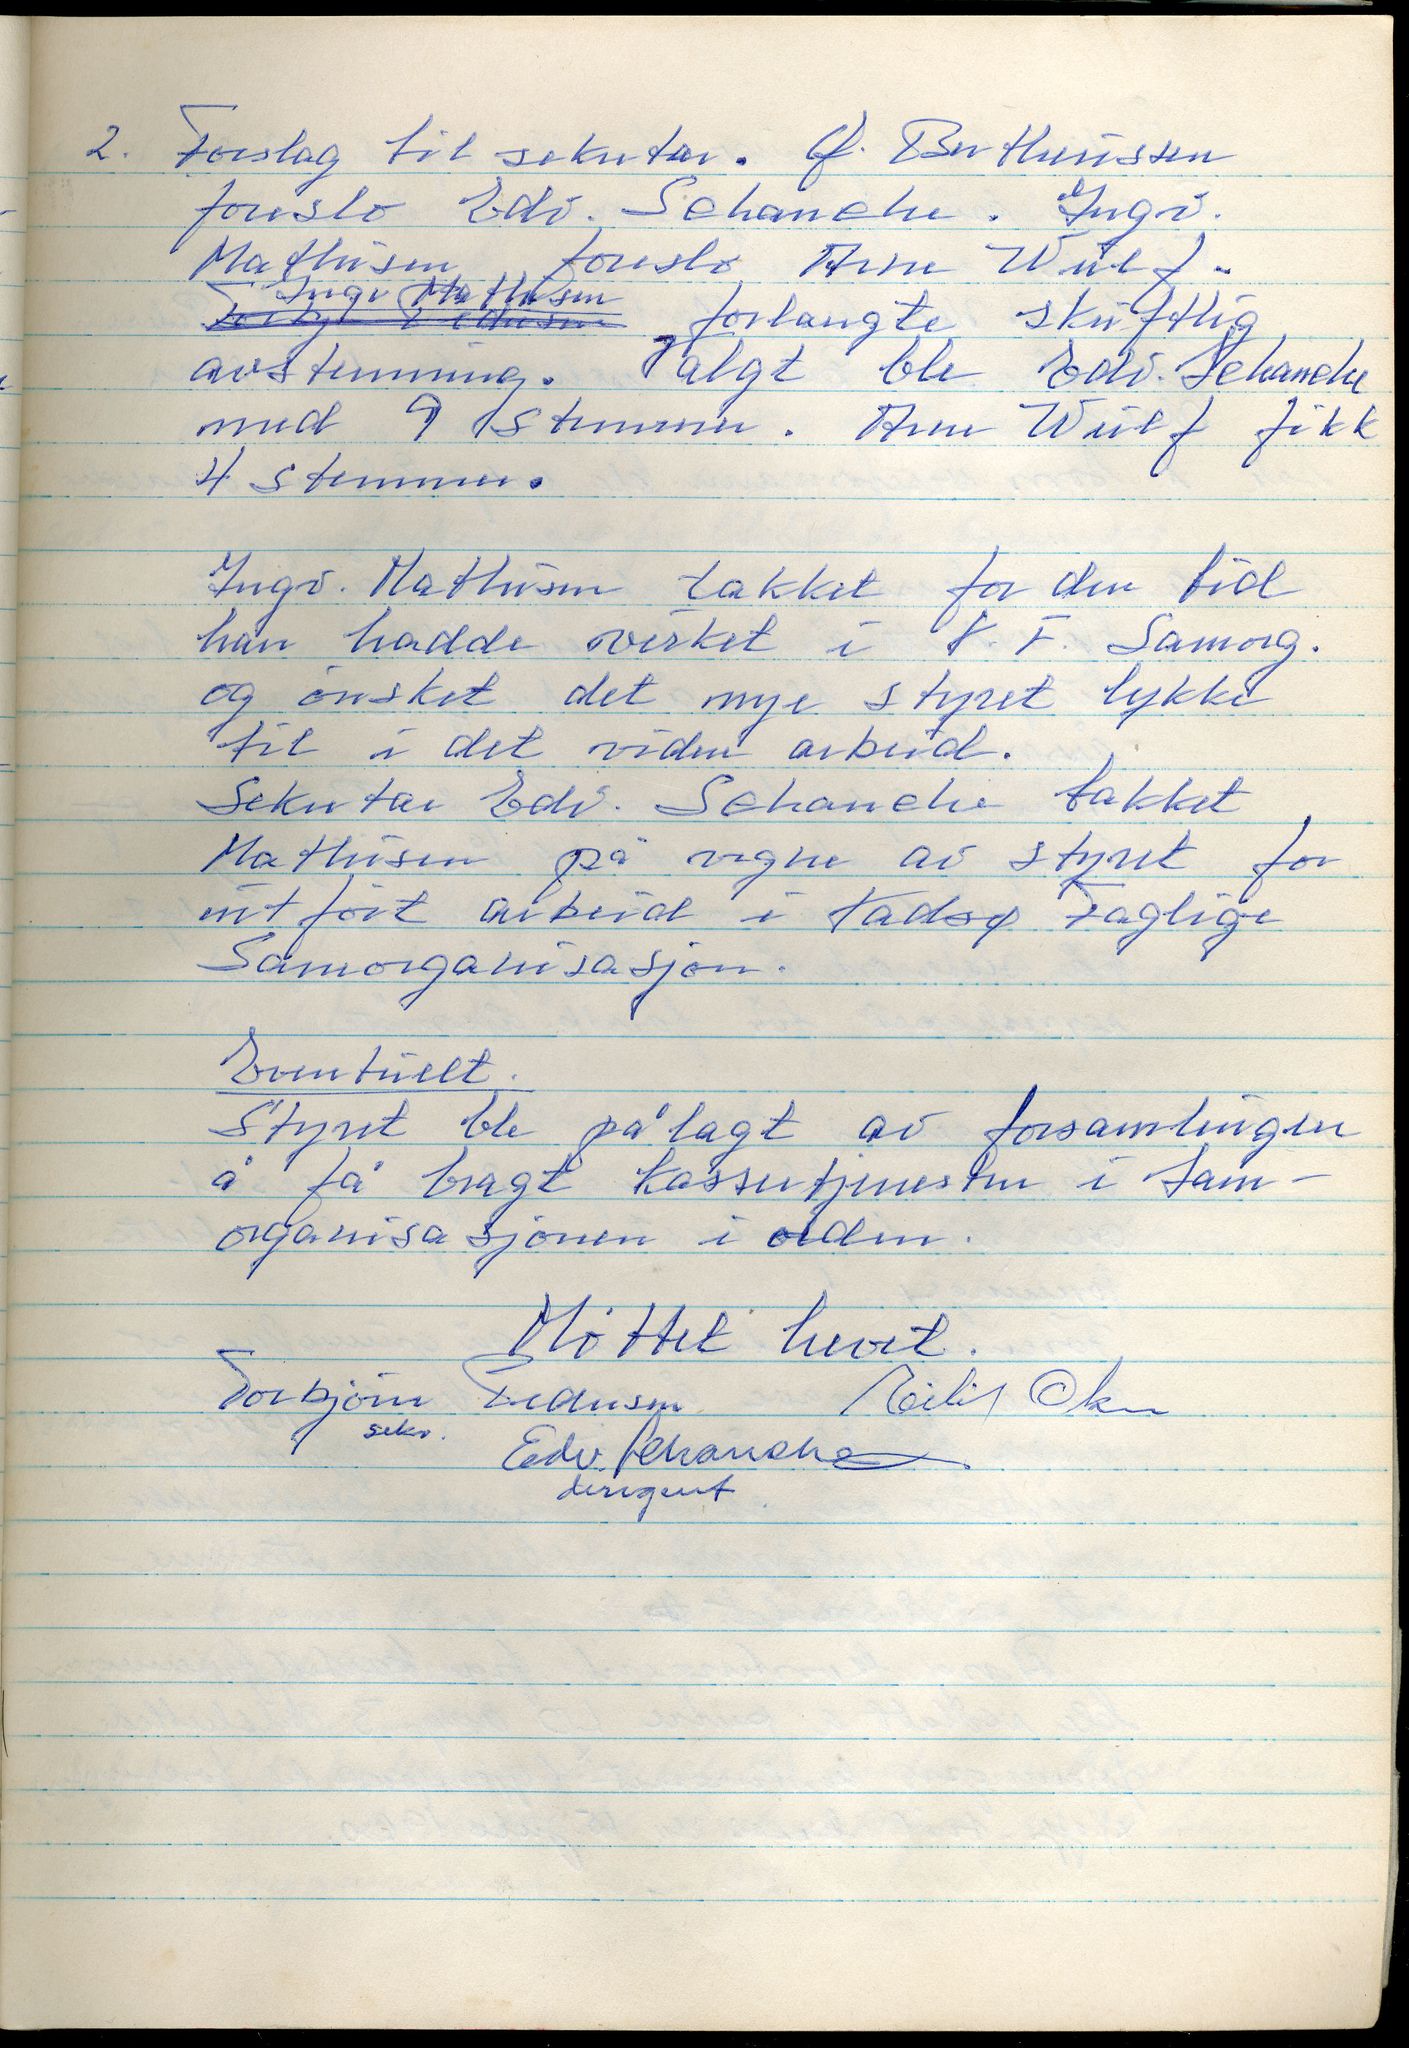 2. Forslag til sekretær. Berthinussen
foreslo Edv. Schanche. Ingv.
Mathisen foreslo Arne Wulf.
Ingv Mathisen
forlangte skriftlig
avstemming. Valgt ble Edv. Schanche
med 9 stemmer. Arne Wulf fikk
4 stemmer.
Ingv. Mathisen takket for den tid
han hadde virket i V. F. Samorg.
og ønsket det nye styret lykke
til i det videre arbeid.
Sekretær Edv. Schanche takket
Mathisen på vegne av styret for
utført arbeid i Vadsø Faglige
Samorganisasjon.
Eventuelt.
Styret ble pålagt av forsamlingen
å få bragt kassertjenesten i Sam-
organisasjonen i orden.
Møttet hevet.
Torbjørn Pedersen Eilif Oker
sekr.
Edv. Schanche
dirigent